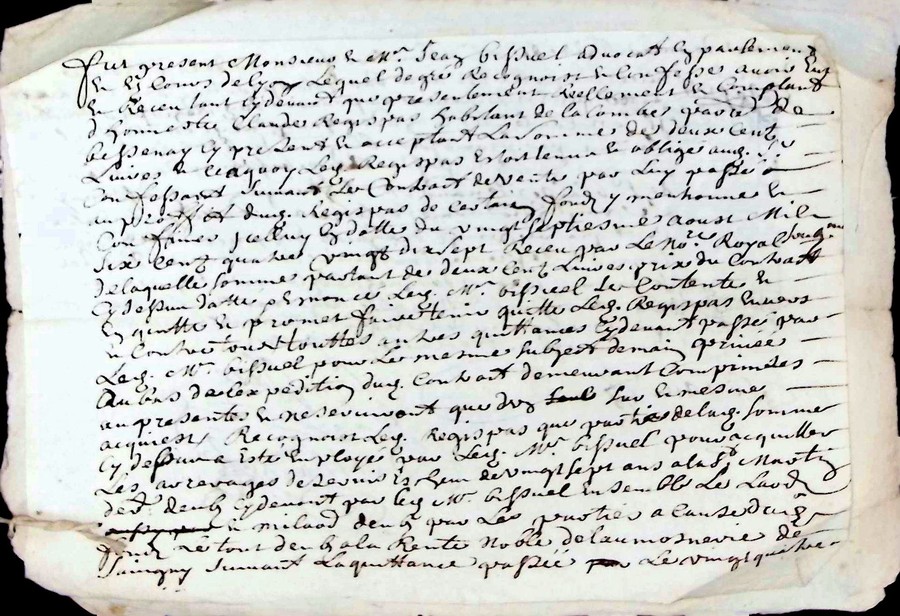 Fut present Monsieur Me Mr. Jean bissuel advocat en parlement
et es Cours de Lyon Lequel de gré Recognoist et Confesse avoir Eu
et Receu tant cydevant que presentement Reellement et Comptant
d'honneste Claude Regispas habitant de la Combe parr. de
bessenay cy present et acceptant La somme de deux Cent
Livres En laquelle Led. Regispas Estoit tenu et obligé aud. Sr.
Confessant suivant Le Contract de vente par Luy passé
au proffit dud. Regispas de certain fond y mentionné et
Confiné Iceluy En datte du vingt septiesme aoust Mil
six Cent quatre vingt dix sept Receu par le No.re Royal soubz.né
de laquelle somme partant de deux Cent Livres prix du Contract
cy dessus datté et enoncé Led. Mr. bissuel se Contente et
En quitte et promet faire tenir quitte Led. Regispas Envers
et Contre tous et touttes autres quittances cydevant passé par
Led. Mr. bissuel pour Le mesme subject de main privée
au bas de L'expedition dud. Contract demeurant Comprinses
au presentes et ne serviront que d'un seul sur et mesme
acquiest, Recognoist Led. Regispas que partie de lad. somme
cy dessus a Esté Employé par Led. Mr. bissuel pour acquitter
Les arrerages de servis Escheus de vingt sept ans a la St. Martin
der. deub cydevant par led. Mr. bissuel Ensemble Le Laod
et milaod deub par Les parties a Cause dud.
fond Le tout deub a la Rente Noble de Laumosnerie de
Savigny suivant La quittance passée Le vingt quatre